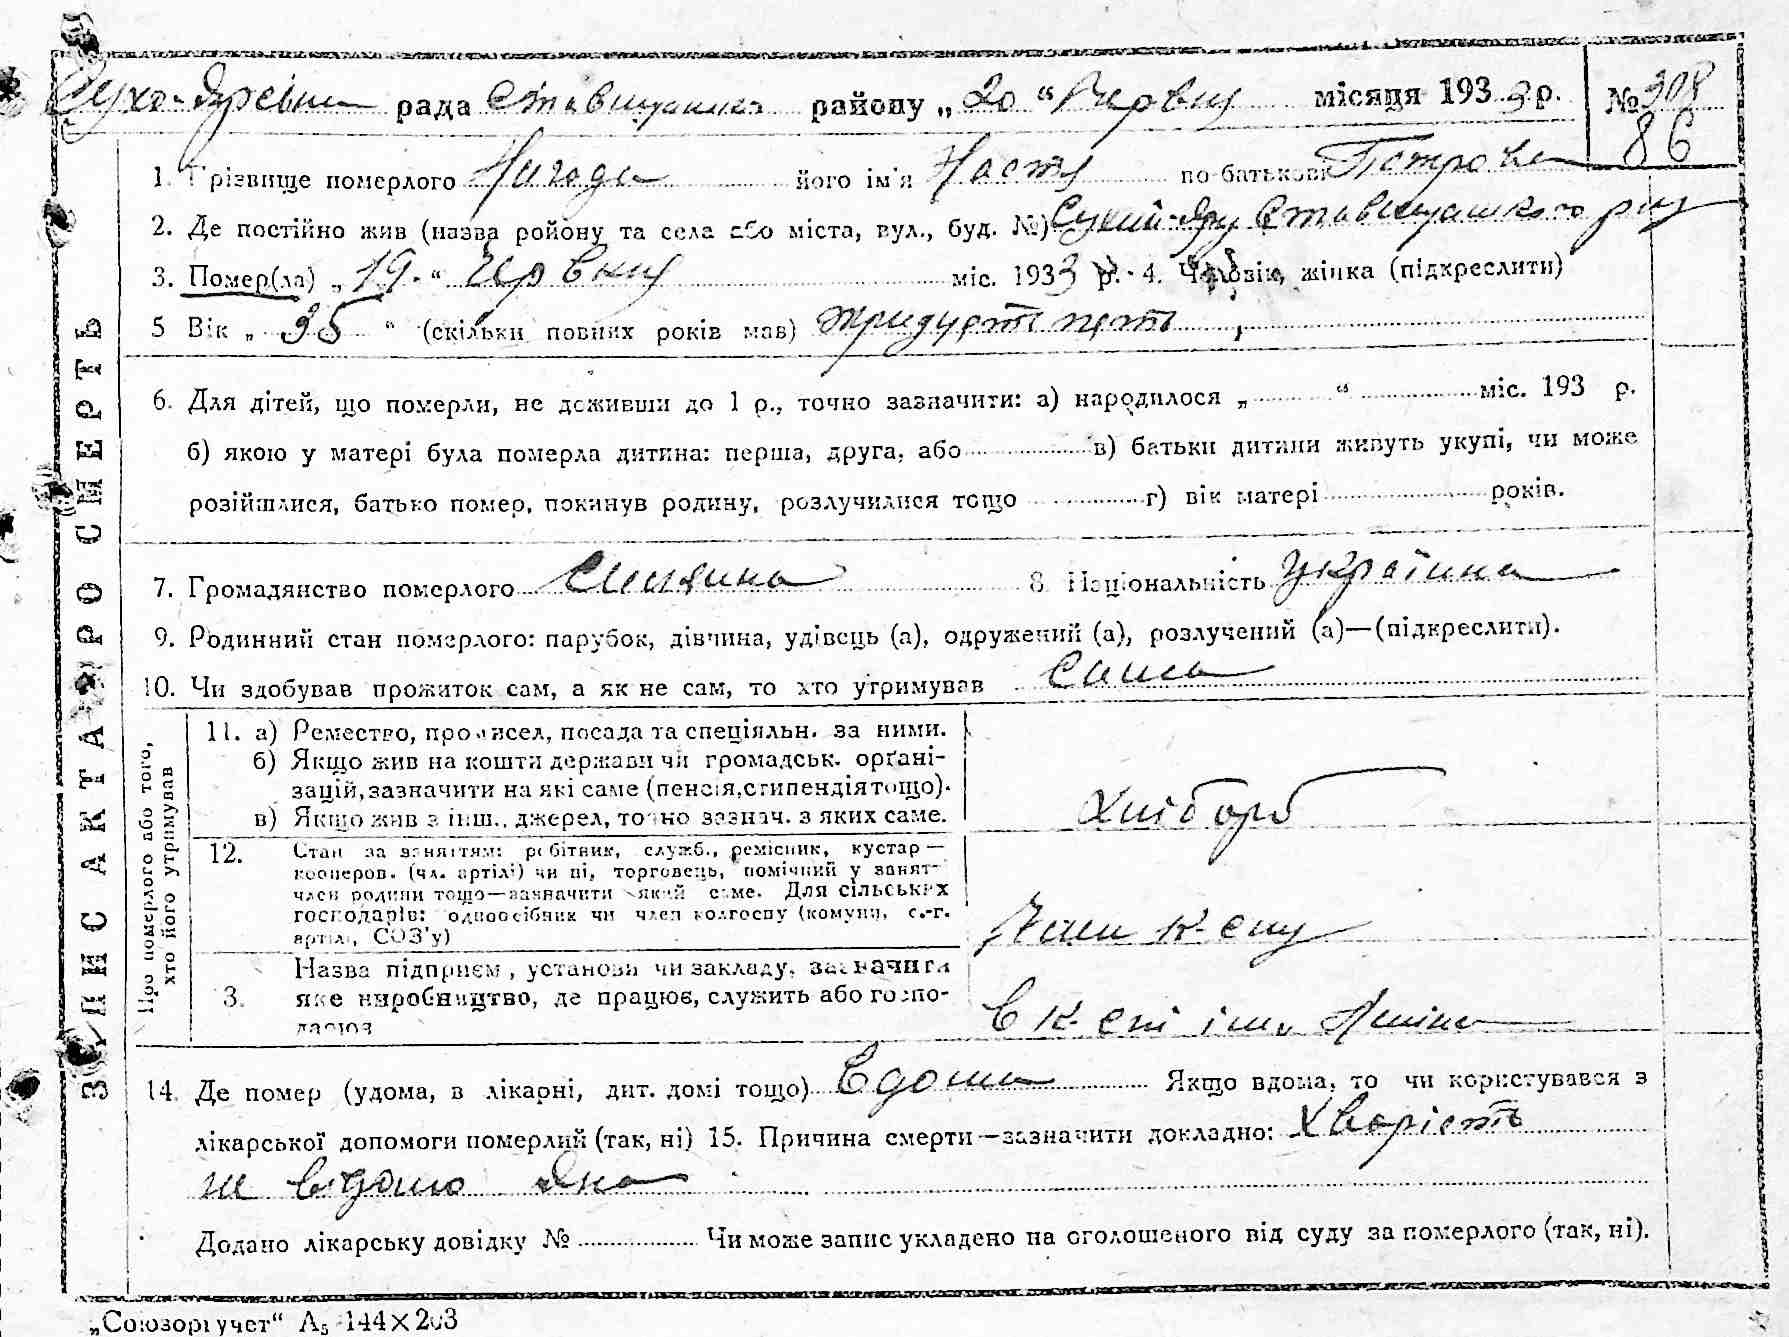 Сухо-Ярська рада Ставищанського району „20“ Червня місяця 1933 р. № 308
86
1. Прізвище померлого його ім'я Настя по-батькові Петрова
2. Де постійно жив (назва ройону та села або міста, вул., буд. №) Сухий-Яру Ставищанського р-ну
3. Помер(ла) „19“ Червня міс. 1933 р. 4. Чоловік, жінка (підкреслити)
5 Вік „35“ (скільки повних років мав) тридцять пять
6. Для дітей, що померли, не доживши до 1 р., точно зазначити: а) народилося „ “ міс. 193 р.
б) якою у матері була померла дитина: перша, друга, або в) батьки дитини живуть укупі, чи може
розійшлися, батько помер, покинув родину, розлучилися тощо г) вік матері років.
7. Громадянство померлого 8. Національність україина
9. Родинний стан померлого: парубок, дівчина, удівець (а), одружений (а), розлучений (а)—(підкреслити).
10. Чи здобував прожиток сам, а як не сам, то хто утримував сама
ЗАПИС АКТА ПРО СМЕРТЬ
Про померлого або того,
хто його утримував
11. а) Ремество, промисел, посада та спеціяльн. за ними.
б) Якщо жив на кошти держави чи громадськ. орґані-
зацій, зазначити на які саме (пенсія, стипендія тощо).
в) Якщо жив з інш., джерел, точно зазнач. з яких саме.
Хлібороб
12. Стан за заняттям: робітник, служб., ремісник, кустар—
кооперов. (чл. артілі) чи ні, торговець, помічний у занят-
член родини тощо—зазначити який саме. Для сільських
господарів: одноосібник чи член колгоспу (комуни, с.-г.
артілі, СОЗ'у)
Член к-спу
3. Назва підприєм, установи чи закладу, зазначити
яке виробництво, де працює, служить або госпо-
дарює
В к-спі ім. Леніна
14. Де помер (удома, в лікарні, дит. домі тощо) Вдома Якщо вдома, то чи користувався з
лікарської допомоги померлий (так, ні) 15. Причина смерти—зазначити докладно: Хворість
не відомо яка
Додано лікарську довідку № Чи може запис укладено на оголошеного від суду за померлого (так, ні).
„Союзоргучет“ А₅ 144×203